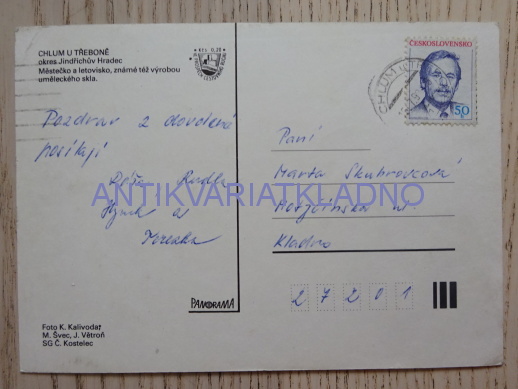 CHLUM U TŘEBONĚ
okres Jindřichův Hradec
Městečko a letovisko, známé též výrobou
uměleckého skla.
Kčs 0,20
ČESKOSLOVENSKO
50
CHLUM
Pozdrav z dovolené
posílají
Ruda
a
Terezka
Paní
Marta
ul.
Kladno
27201
ANTIKVARIATKLADNO
PANORAMA
Foto K. Kalivoda
M. Švec, J. Větroň
SG Č. Kostelec